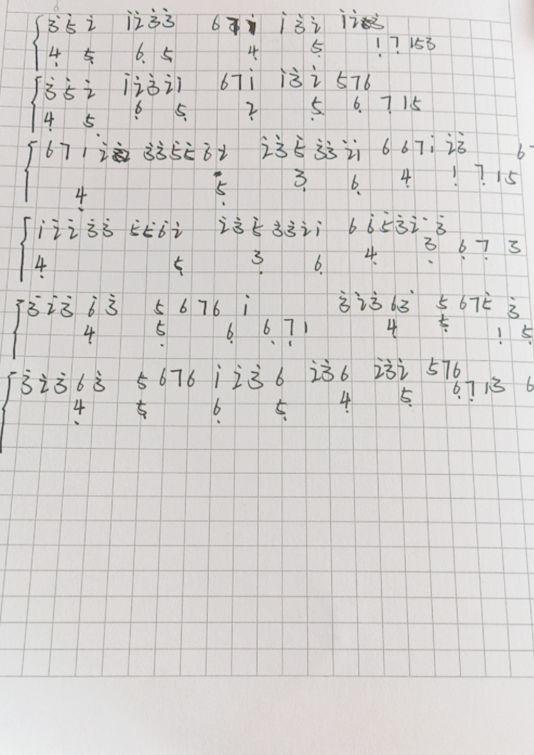 3̇ 5̇ 2̇ 1̇2̇3̇3̇ 6 7 1̇ 1̇ 3̇ 2̇ 1̇2̇3̇
4̣ 5̣ 6̣ 5̣ 4̣ 5̣ 1̣ 7̣ 153
3̇ 5̇ 2̇ 1̇2̇3̇2̇1̇ 671̇ 1̇3̇ 2̇ 576
4̣ 5̣ 6̣ 5̣ 2̣ 5̣ 6̣ 7̣ 15
6 7 1̇ 2̇ 3̇3̇5̇5̇6̇2̇ 2̇3̇5̇ 3̇3̇2̇1̇ 6 671̇ 2̇3̇
4̣ 5̣ 3̣ 6̣ 4̣ 1̣ 7̣ 15
1̇2̇2̇ 3̇3̇ 5̇5̇6̇2̇ 2̇3̇5̇ 3̇3̇2̇1̇ 6 6̇5̇3̇2̇ 3̇
4̣ 5̣ 3̣ 6̣ 4̣ 3̣ 6̣ 7̣ 3
3̇2̇3̇ 6̇3̇ 5 676 1̇ 3̇2̇3̇ 6̇3̇ 5 675 3̇
4̣ 5̣ 6̣ 6̣ 7̣ 1 4̣ 5̣ 1̣ 5̣
3̇2̇3̇ 6̇3̇ 5 676 1̇ 2̇3̇ 6 2̇3̇6 2̇3̇2̇ 576
4̣ 5̣ 6̣ 5̣ 4̣ 5̣ 6̣7̣13 6